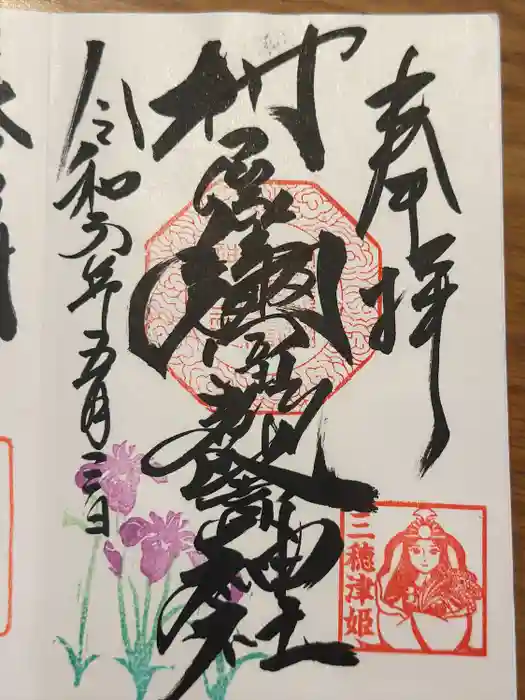 奉拝
村屋坐彌冨都比賣神社
三穂津姫
令和六年五月三日